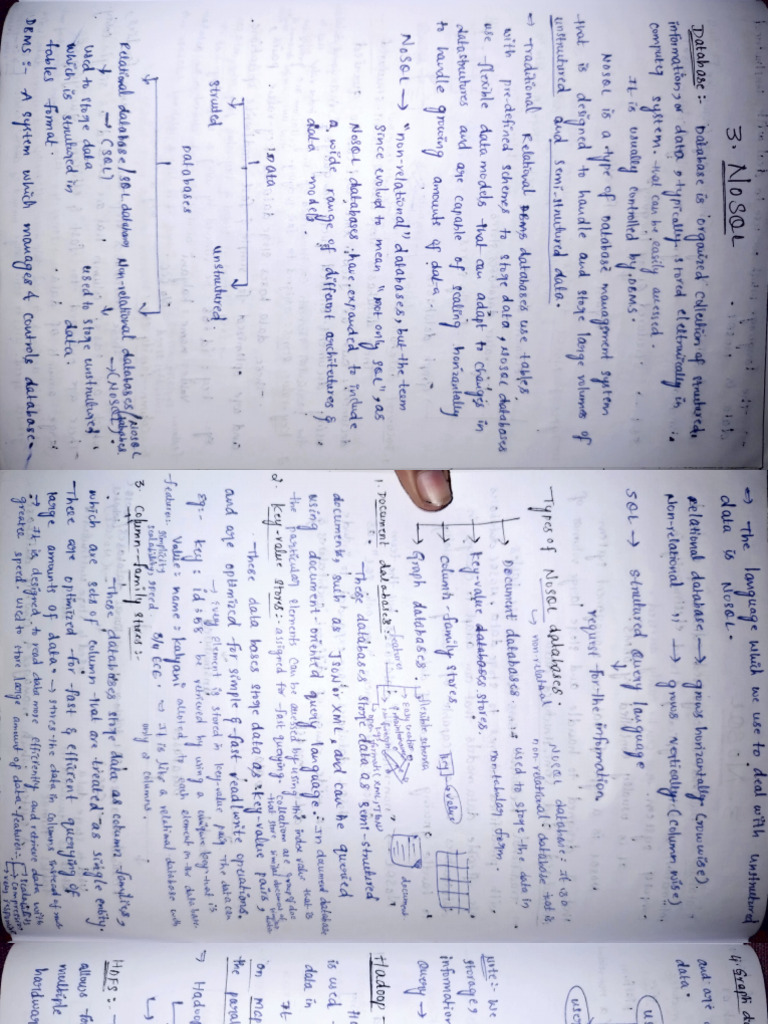 3. NoSQL
Database :- Database is organized collection of structured
information, or data, typically stored electronically in
computer system. that can be easily accessed.
It is usually controlled by DBMS.
NoSQL is a type of Database management system
that is designed to handle and store large volumes of
unstructured and semi-structured data.
→ Traditional Relational DBMS databases use tables
with pre-defined schemes to store data, NoSQL databases
use flexible data models that can adapt to changes in
datastructures and are capable of scaling horizontally
to handle growing amounts of data.
NoSQL → "non-relational" databases, but the team
since evolved to mean "not only SQL", as
NoSQL databases have expanded to include
a wide range of different architectures &
data models.
Data
struded
unstrutured
Databases
Relational database/SQL database
→ (SQL)
used to store data
which is strutured in
tables format.
Non-relational databases/NoSQL
→ (NoSQL)
used to store unstrutured
data.
DBMS :- A system which manages & controls database
→ The language which we use to deal with unstrutured
data is NoSQL.
Relational database → grows horizontally (rowwise).
Non-relational → grows vertically (column wise)
SQL → structured query language
request for the information
Types of NoSQL databases.
non relational
NoSQL database :- It is a
non relational database that is
used to store the data in
non tabular form.
→ Document databases
→ Key-value databases stores.
→ column-family stores.
→ Graph databases.
Key value
document
1. Document databases :-
These databases store data as semi-structured
documents, such as JSON or XML, and can be queried
using document-oriented query language. In document database
the particular elements can be accessed by using the index value that is
assigned for fast querying.
2. Key-value stores :-
These data bases store data as key-value pairs,
and are optimized for simple & fast read/write operations.
→ Every element is stored in key-value pairs. The data can
be retrieved by using a unique key that is
alloted to each element in the database
eg :- key : id : 58
Value : name : kalyani
ECE. → It is like a relational database with
only 2 columns.
features: simplicity
scalability, speed
3. Column-family stores :-
These databases store data as column families,
which are sets of column that are treated as single entity
These are optimized for fast & efficient querying of
large amounts of data. → stores the data in columns instead of rows
→ It is designed to read data more efficiently and retrieve data with
greater speed. used to store large amount of data. features:- scalability
compression
very responsive
4. Graph
and are
data.
query →
Hadoop -
is used
data in
on Map
the paral
→ Hadoo
HDFS :-
allows fo
multiple
hardwar